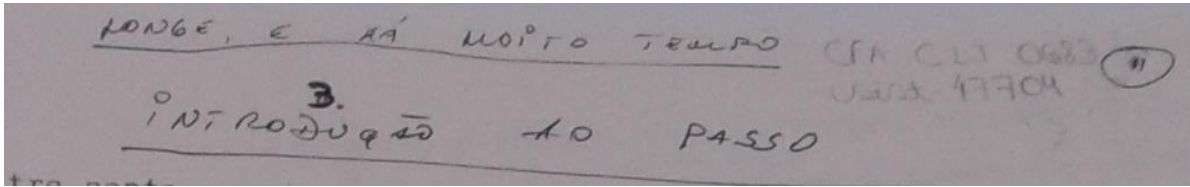 LONGE, E HÁ MOITO TEMPO
CFA CLT 0683
11
47704
3.
INTRODUÇÃO AO PASSO